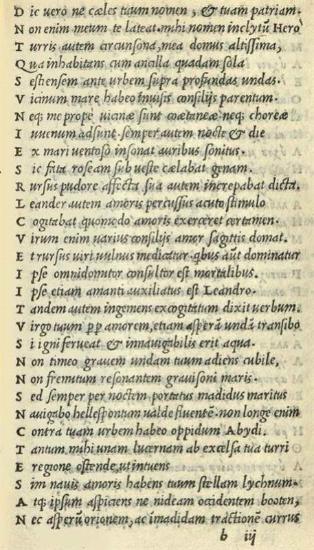 D ic uero ne cæles tuum nomen, & tuam patriam.
N on enim meum te lateat. mihi nomen inclytũ Hero
T urris autem circunsona, mea domus altissima,
Q ua inhabitans cum ancilla quadam sola
S estiensem ante urbem supra profundas undas.
V icinum mare habeo inuisis consilijs parentum.
N eq; me prope uicinæ sunt coætaneæ neq; choreæ
I uuenum adsunt. semper autem nocte & die
E x mari uentoso insonat auribus sonitus.
S ic fata roseam sub ueste cælabat genam.
R ursus pudore affecta sua autem increpabat dicta.
L eander autem amoris percussus acuto stimulo
C ogitabat quomodo amoris exerceret certamen.
V irum enim uarius consilijs amor sagittis domat.
E t rursus uiri uulnus medicatur. qbus aũt dominatur
I pse omnidomitor consultor est mortalibus.
I pse etiam amanti auxiliatus est Leandro.
T andem autem ingemens excogitatum dixit uerbum.
V irgo tuum pp amorem, etiam asperã undã transibo
S i igni ferueat & innauigabilis erit aqua.
N on timeo grauem undam tuum adiens cubile,
N on fremitum resonantem grauisoni maris.
S ed semper per noctem portatus madidus maritus
N auigabo hellespontum ualde fluentẽ. non longe enim
C ontra tuam urbem habeo oppidum Abydi.
T antum. mihi unam lucernam ab excelsa tua turri
E regione ostende, ut intuens
S im nauis amoris habens tuum stellam lychnum.
A tq; ipsum aspiciens ne uideam occidentem booten,
N ec asperũ orionem, ac imadidam tractionẽ currus
b iij